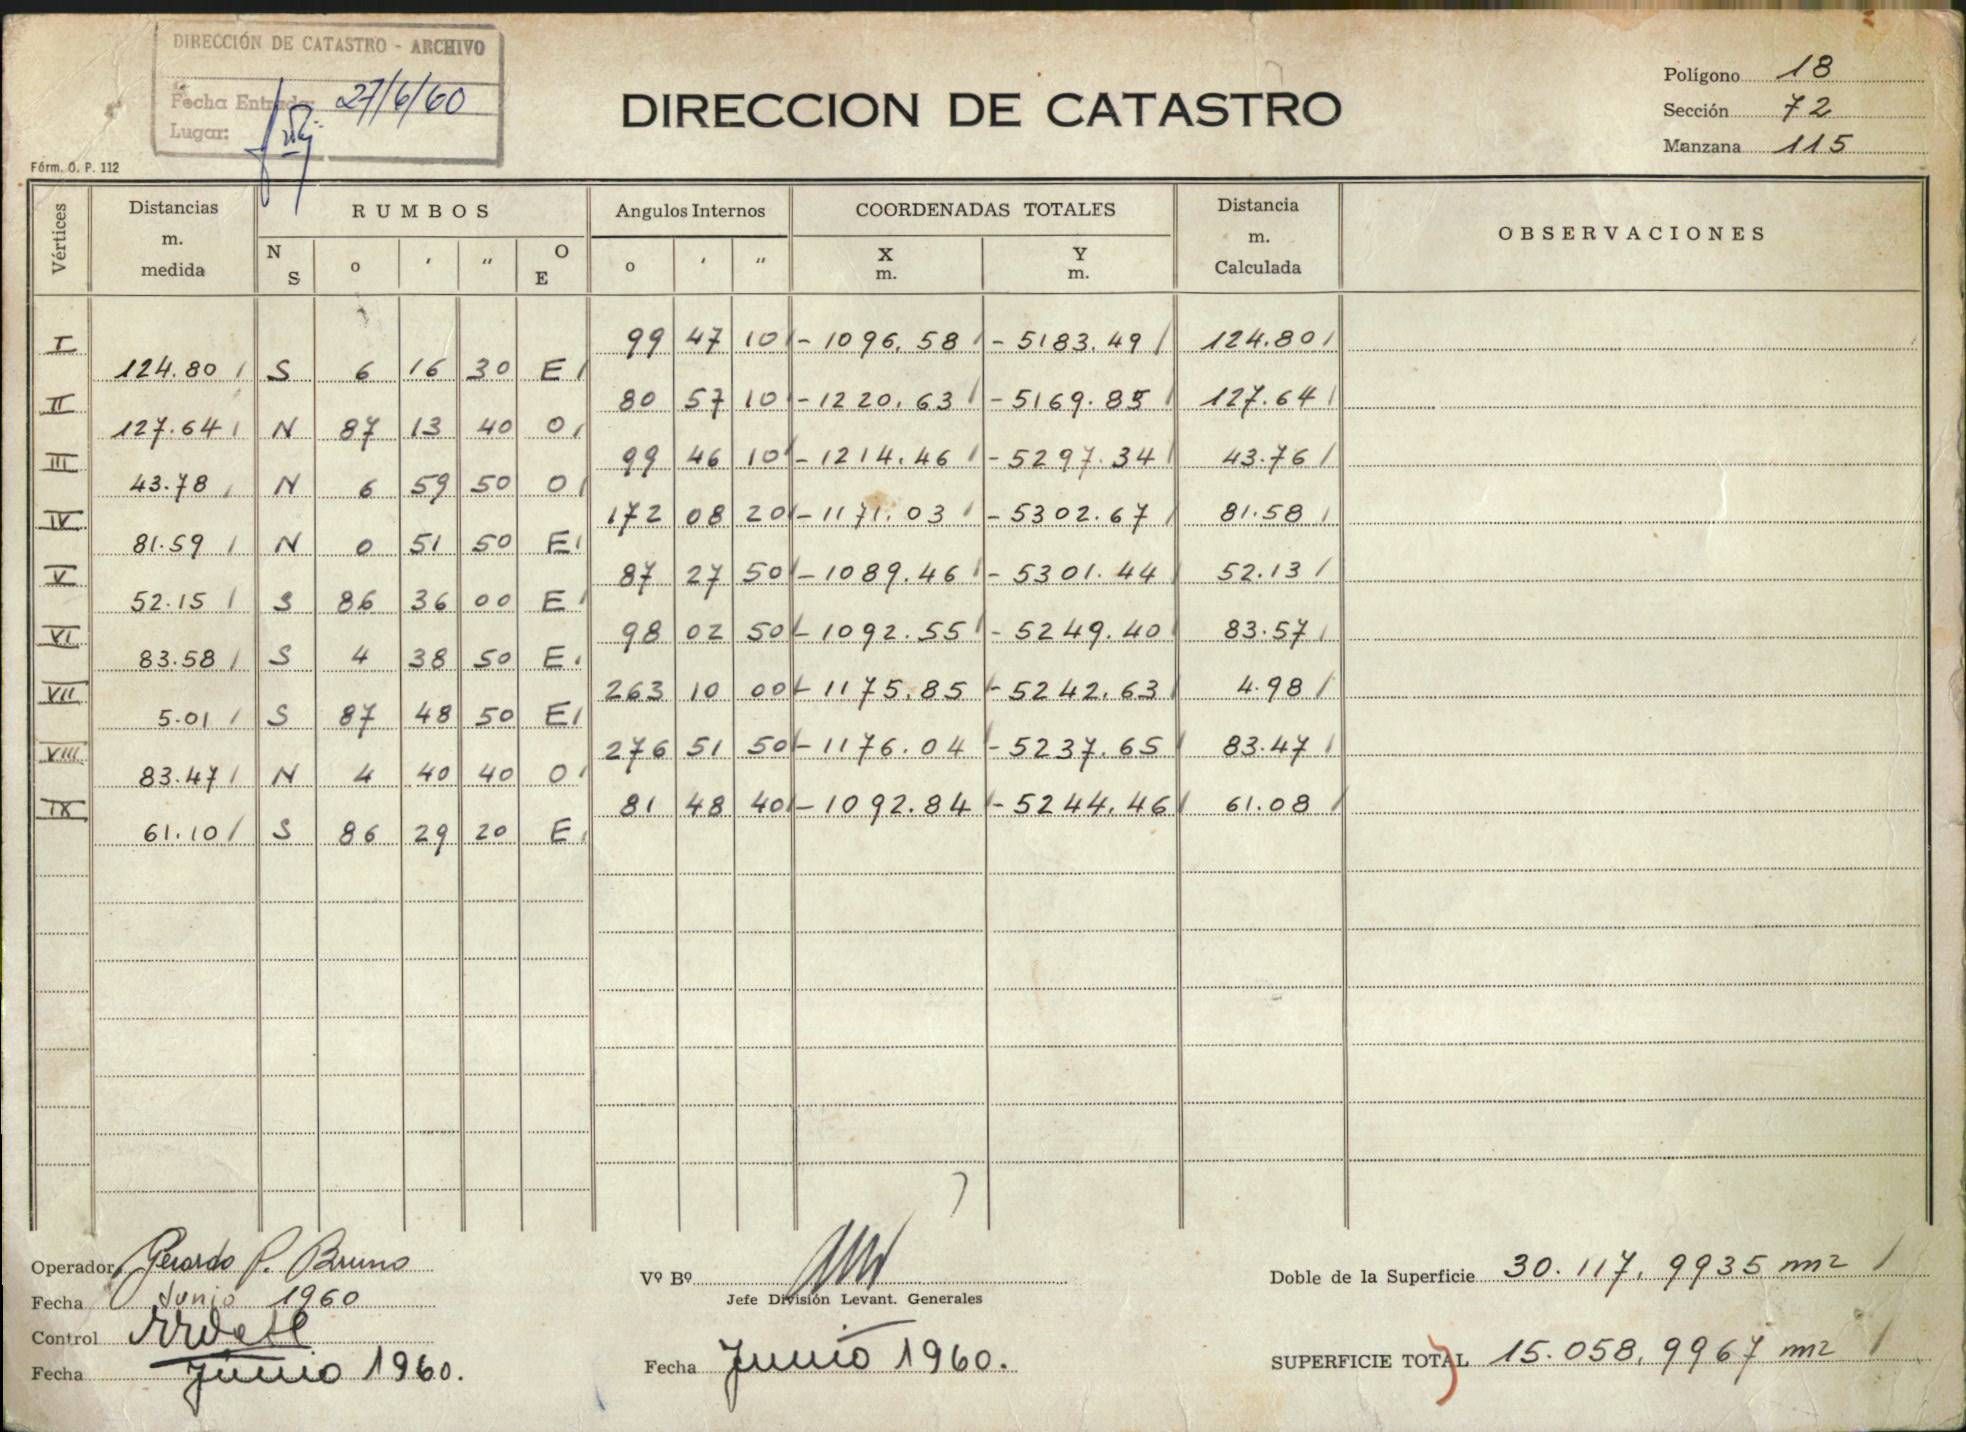 DIRECCIÓN DE CATASTRO - ARCHIVO
Fecha Entrada: 27/6/60
Lugar:
Fórm. O. P. 112
DIRECCION DE CATASTRO
Polígono 18
Sección 72
Manzana 115
Vértices Distancias m. medida RUMBOS Angulos Internos COORDENADAS TOTALES Distancia m. Calculada OBSERVACIONES
N S o ' " O E o ' " X m. Y m.
I 99 47 10 - 1096.58 - 5183.49 124.80
124.80 S 6 16 30 E
II 80 57 10 - 1220.63 - 5169.85 127.64
127.64 N 87 13 40 O
III 99 46 10 - 1214.46 - 5297.34 43.76
43.78 N 6 59 50 O
IV 172 08 20 - 1171.03 - 5302.67 81.58
81.59 N 0 51 50 E
V 87 27 50 - 1089.46 - 5301.44 52.13
52.15 S 86 36 00 E
VI 98 02 50 - 1092.55 - 5249.40 83.57
83.58 S 4 38 50 E
VII 263 10 00 - 1175.85 - 5242.63 4.98
5.01 S 87 48 50 E
VIII 276 51 50 - 1176.04 - 5237.65 83.47
83.47 N 4 40 40 O
IX 81 48 40 - 1092.84 - 5244.46 61.08
61.10 S 86 29 20 E
Operador Gerardo P. Bruno
Fecha Junio 1960
Control
Fecha Junio 1960.
Vº Bº
Jefe División Levant. Generales
Fecha Junio 1960.
Doble de la Superficie 30.117,9935 m2
SUPERFICIE TOTAL 15.058,9967 m2